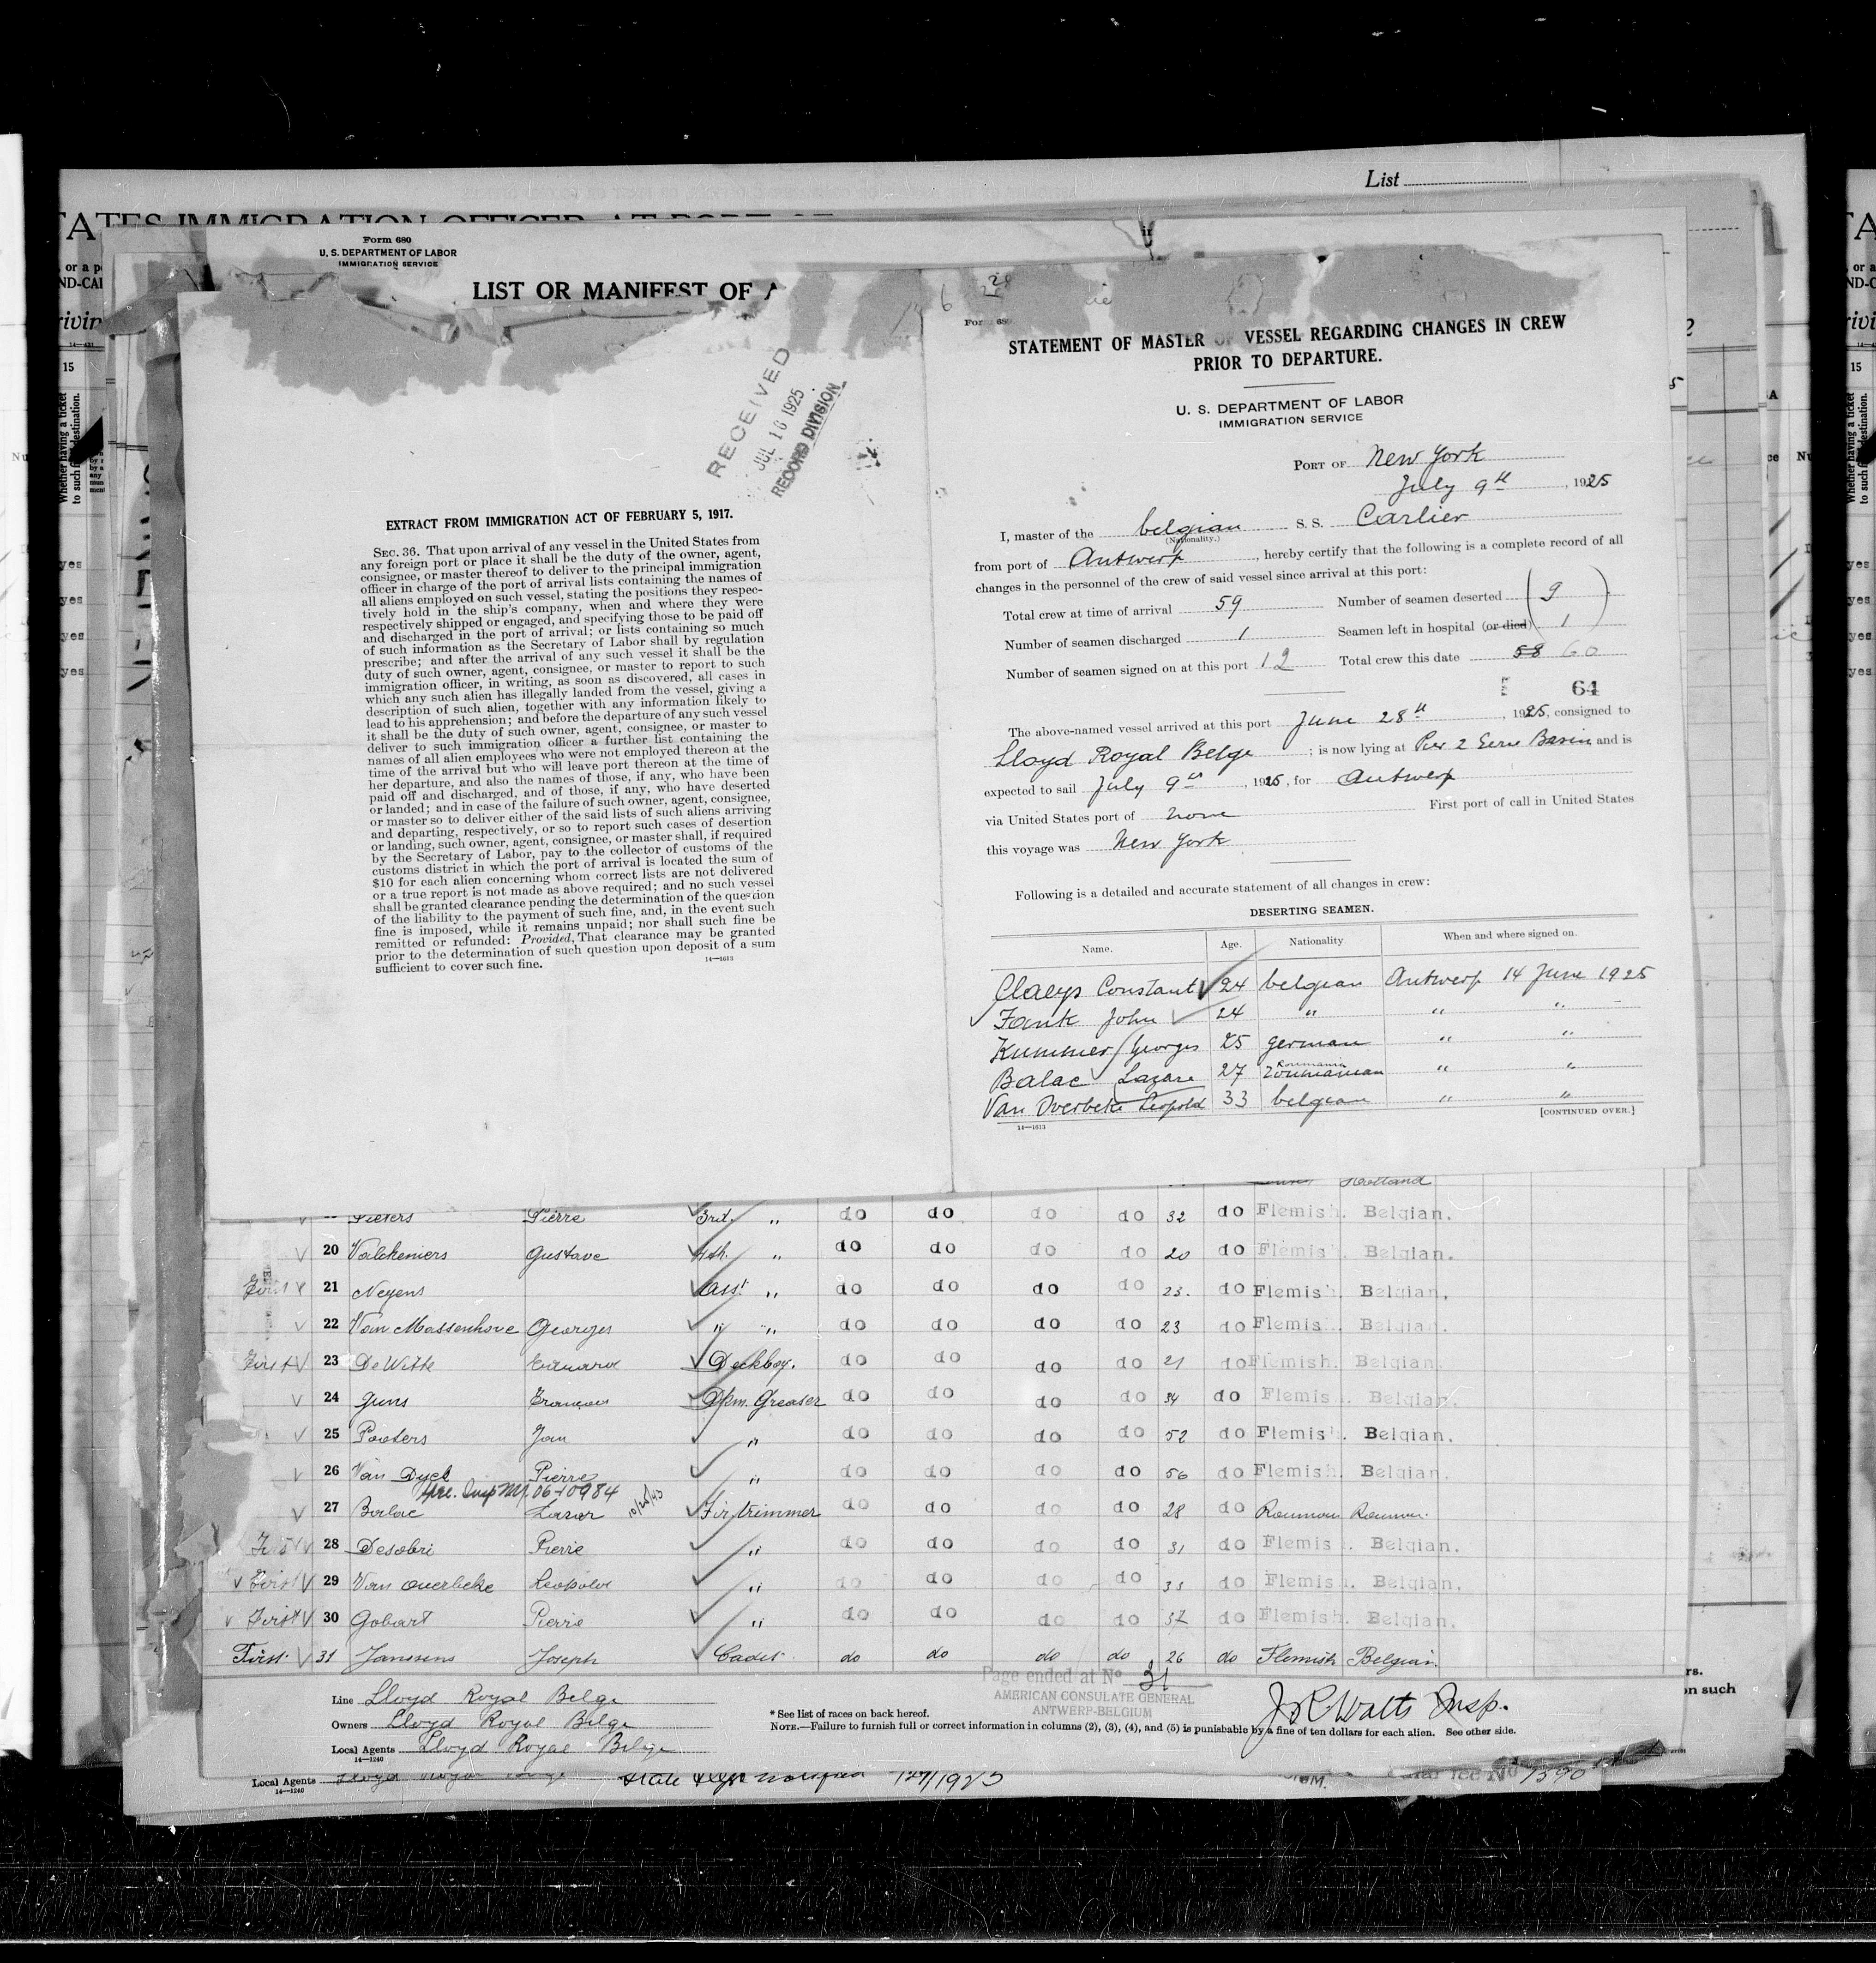 List
Form 680
U. S. DEPARTMENT OF LABOR
IMMIGRATION SERVICE
LIST OR MANIFEST OF
RECEIVED
JUL 16 1925
RECORD DIVISION
EXTRACT FROM IMMIGRATION ACT OF FEBRUARY 5, 1917.
SEC. 36. That upon arrival of any vessel in the United States from
any foreign port or place it shall be the duty of the owner, agent,
consignee, or master thereof to deliver to the principal immigration
officer in charge of the port of arrival lists containing the names of
all aliens employed on such vessel, stating the positions they respec-
tively hold in the ship's company, when and where they were
respectively shipped or engaged, and specifying those to be paid off
and discharged in the port of arrival; or lists containing so much
of such information as the Secretary of Labor shall by regulation
prescribe; and after the arrival of any such vessel it shall be the
duty of such owner, agent, consignee, or master to report to such
immigration officer, in writing, as soon as discovered, all cases in
which any such alien has illegally landed from the vessel, giving a
description of such alien, together with any information likely to
lead to his apprehension; and before the departure of any such vessel
it shall be the duty of such owner, agent, consignee, or master to
deliver to such immigration officer a further list containing the
names of all alien employees who were not employed thereon at the
time of the arrival but who will leave port thereon at the time of
her departure, and also the names of those, if any, who have been
paid off and discharged, and of those, if any, who have deserted
or landed; and in case of the failure of such owner, agent, consignee,
or master so to deliver either of the said lists of such aliens arriving
and departing, respectively, or so to report such cases of desertion
or landing, such owner, agent, consignee, or master shall, if required
by the Secretary of Labor, pay to the collector of customs of the
customs district in which the port of arrival is located the sum of
$10 for each alien concerning whom correct lists are not delivered
or a true report is not made as above required; and no such vessel
shall be granted clearance pending the determination of the question
of the liability to the payment of such fine, and, in the event such
fine is imposed, while it remains unpaid; nor shall such fine be
remitted or refunded: Provided, That clearance may be granted
prior to the determination of such question upon deposit of a sum
sufficient to cover such fine.
14—1613
STATEMENT OF MASTER OF VESSEL REGARDING CHANGES IN CREW
PRIOR TO DEPARTURE.
U. S. DEPARTMENT OF LABOR
IMMIGRATION SERVICE
PORT OF New York
July 9th, 1925
I, master of the belgian S. S. Carlier
(Nationality.)
from port of Antwerp, hereby certify that the following is a complete record of all
changes in the personnel of the crew of said vessel since arrival at this port:
Total crew at time of arrival 59 Number of seamen deserted 9
Number of seamen discharged 1 Seamen left in hospital (or died) 1
Number of seamen signed on at this port 12 Total crew this date 58 60
64
The above-named vessel arrived at this port June 28th, 1925, consigned to
Lloyd Royal Belge; is now lying at Pier 2 Erie Basin and is
expected to sail July 9th, 1925, for Antwerp
via United States port of none First port of call in United States
this voyage was New York
Following is a detailed and accurate statement of all changes in crew:
DESERTING SEAMEN.
Name. Age. Nationality When and where signed on.
Claeys Constant 24 belgian Antwerp 14 June 1925
Fank John 24 " " "
Kummer Georges 25 german " "
Balac Lazare 27 roumanian Roumania " "
Van Overbeke Leopold 33 belgian " "
14—1613 [CONTINUED OVER.]
Holland
Pieters Pierre 3rd. " do do do do 32 do Flemish. Belgian.
20 Valckeniers Gustave 4th. " do do do do 20 do Flemish. Belgian.
First 21 Neyens Asst " do do do do 23. do Flemish. Belgian.
22 Van Massenhove Georges " " do do do do 23 do Flemish. Belgian.
First 23 De Witte Eduard Deckboy. do do do do 21 do Flemish. Belgian.
24 Guns François Dkm. Greaser do do do do 34 do Flemish. Belgian.
25 Pooters Jan " do do do do 52 do Flemish. Belgian.
26 Van Dyck Pierre " do do do do 56 do Flemish. Belgian.
10/25/43
27 Balac Lazar Fir. trimmer do do do do 28 do Rouman Rouman.
First 28 Desobri Pierre " do do do do 31 do Flemish. Belgian.
First 29 Van Overbeke Leopold " do do do do 33 do Flemish. Belgian.
First 30 Gobart Pierre " do do do do 37 do Flemish. Belgian.
First 31 Janssens Joseph Cadet do do do do 26 do Flemish Belgian.
Page ended at No 31
AMERICAN CONSULATE GENERAL
ANTWERP-BELGIUM
Line Lloyd Royal Belge
Owners Lloyd Royal Belge
Local Agents Lloyd Royal Belge
14—1240
* See list of races on back hereof.
NOTE.—Failure to furnish full or correct information in columns (2), (3), (4), and (5) is punishable by a fine of ten dollars for each alien. See other side.
Watts Insp.
Local Agents Lloyd Royal Belge
14—1240
1390